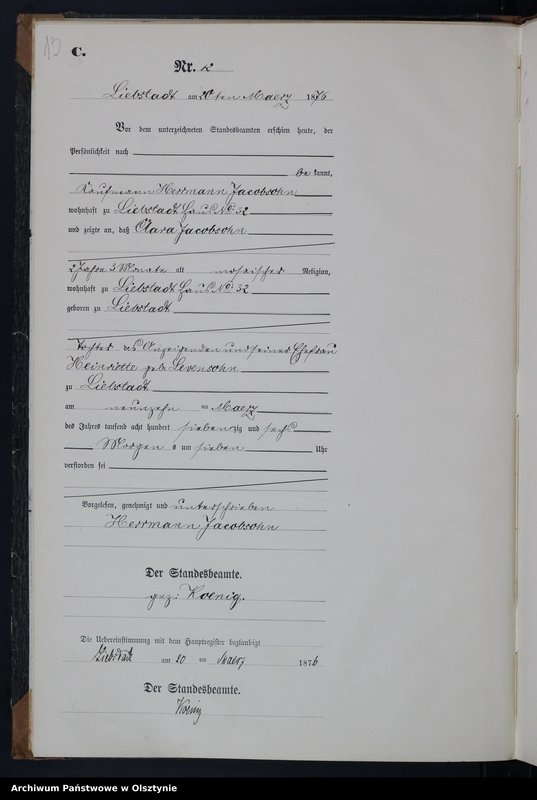 C.
Nr. 12
Liebstadt am 20ten Maerz 1876
Vor dem unterzeichneten Standesbeamten erschien heute, der
Persönlichkeit nach
be kannt,
Kaufmann Herrmann Jacobsohn
wohnhaft zu Liebstadt Haus No: 32
und zeigte an, daß Clara Jacobsohn
2 Jahre 3 Monate alt mosaischer Religion,
wohnhaft zu Liebstadt Haus No: 32
geboren zu Liebstadt
Tochter des Anzeigenden und seiner Ehefrau
Heinriette geb: Levensohn
zu Liebstadt
am neunzehn ten Maerz
des Jahres tausend acht hundert siebenzig und sechs
Morgen s um sieben Uhr
verstorben sei
Vorgelesen, genehmigt und unterschrieben
Herrmann Jacobsohn
Der Standesbeamte.
gez: Koenig.
Die Uebereinstimmung mit dem Hauptregister beglaubigt
Liebstadt am 20 ten Maerz 1876
Der Standesbeamte.
Koenig
Archiwum Państwowe w Olsztynie